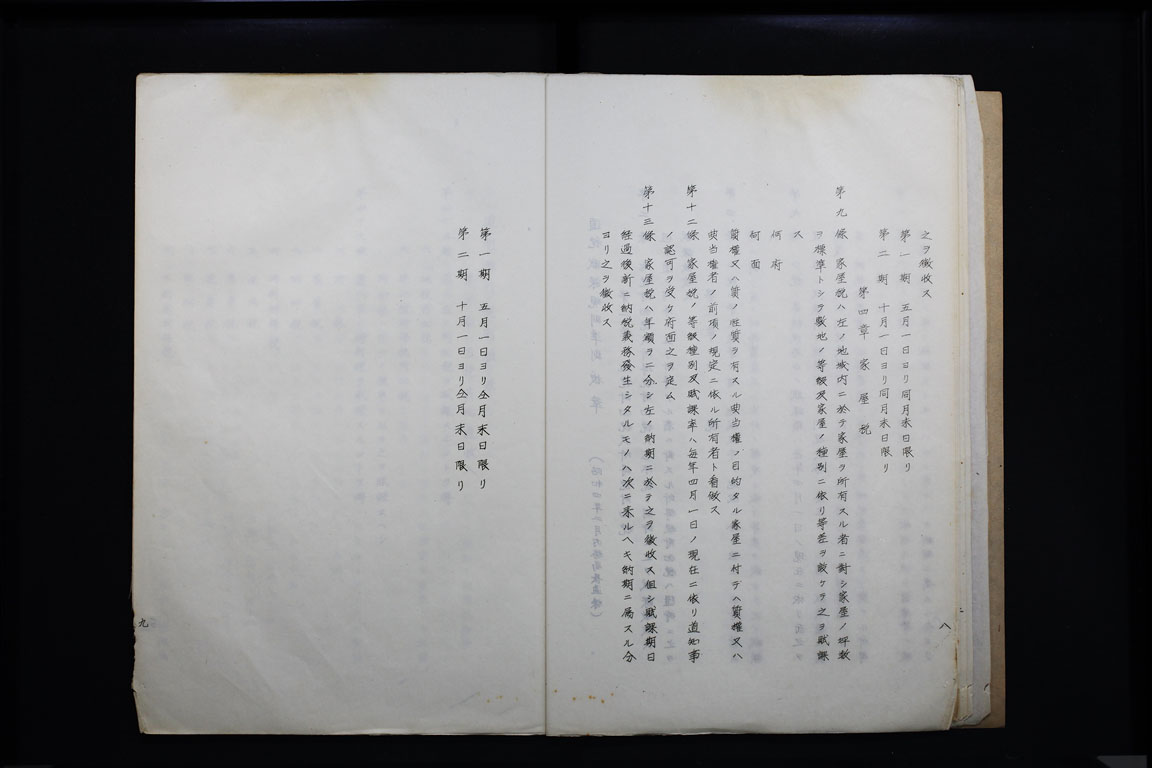 之ヲ徴收ス
第一期 五月一日ヨリ同月末日限リ
第二期 十月一日ヨリ同月末日限リ
第四章 家屋税
第九條 家屋税ハ左ノ地域内ニ於テ家屋ヲ所有スル者ニ對シ家屋ノ坪数
ヲ標準トシヲ敷地ノ等級及家屋ノ種別ニ依リ等差ヲ設ケヲ之ヲ賦課
ス
何府
何面
質權又ハ質ノ性質ヲ有スル典当權ノ目的タル家屋ニ付テハ質權又ハ
典当權者ノ前項ノ規定ニ依ル所有者ト看做ス
第十二條 家屋税ノ等級種別及賦課率ハ毎年四月一日ノ現在ニ依リ道知事
ノ認可ヲ受ケ府面之ヲ定ム
第十三條 家屋税ハ年額ヲ二分シ左ノ納期ニ於テ之ヲ徴收ス但シ賦課期日
経過後新ニ納税義務發生シタルモノハ次ニ来ルヘキ納期ニ属スル分
ヨリ之ヲ徴收ス
八
第一期 五月一日ヨリ仝月末日限リ
第二期 十月一日ヨリ仝月末日限リ
九